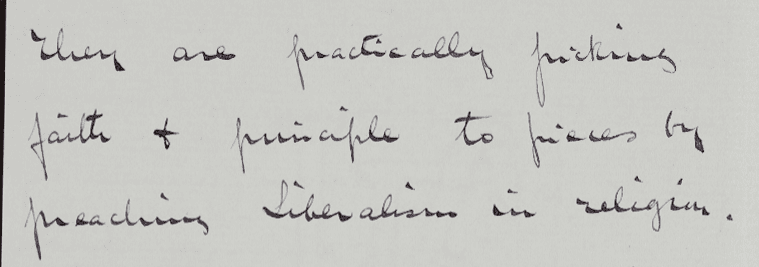 They are practically picking
faith & principle to pieces by
preaching Liberalism in religion.